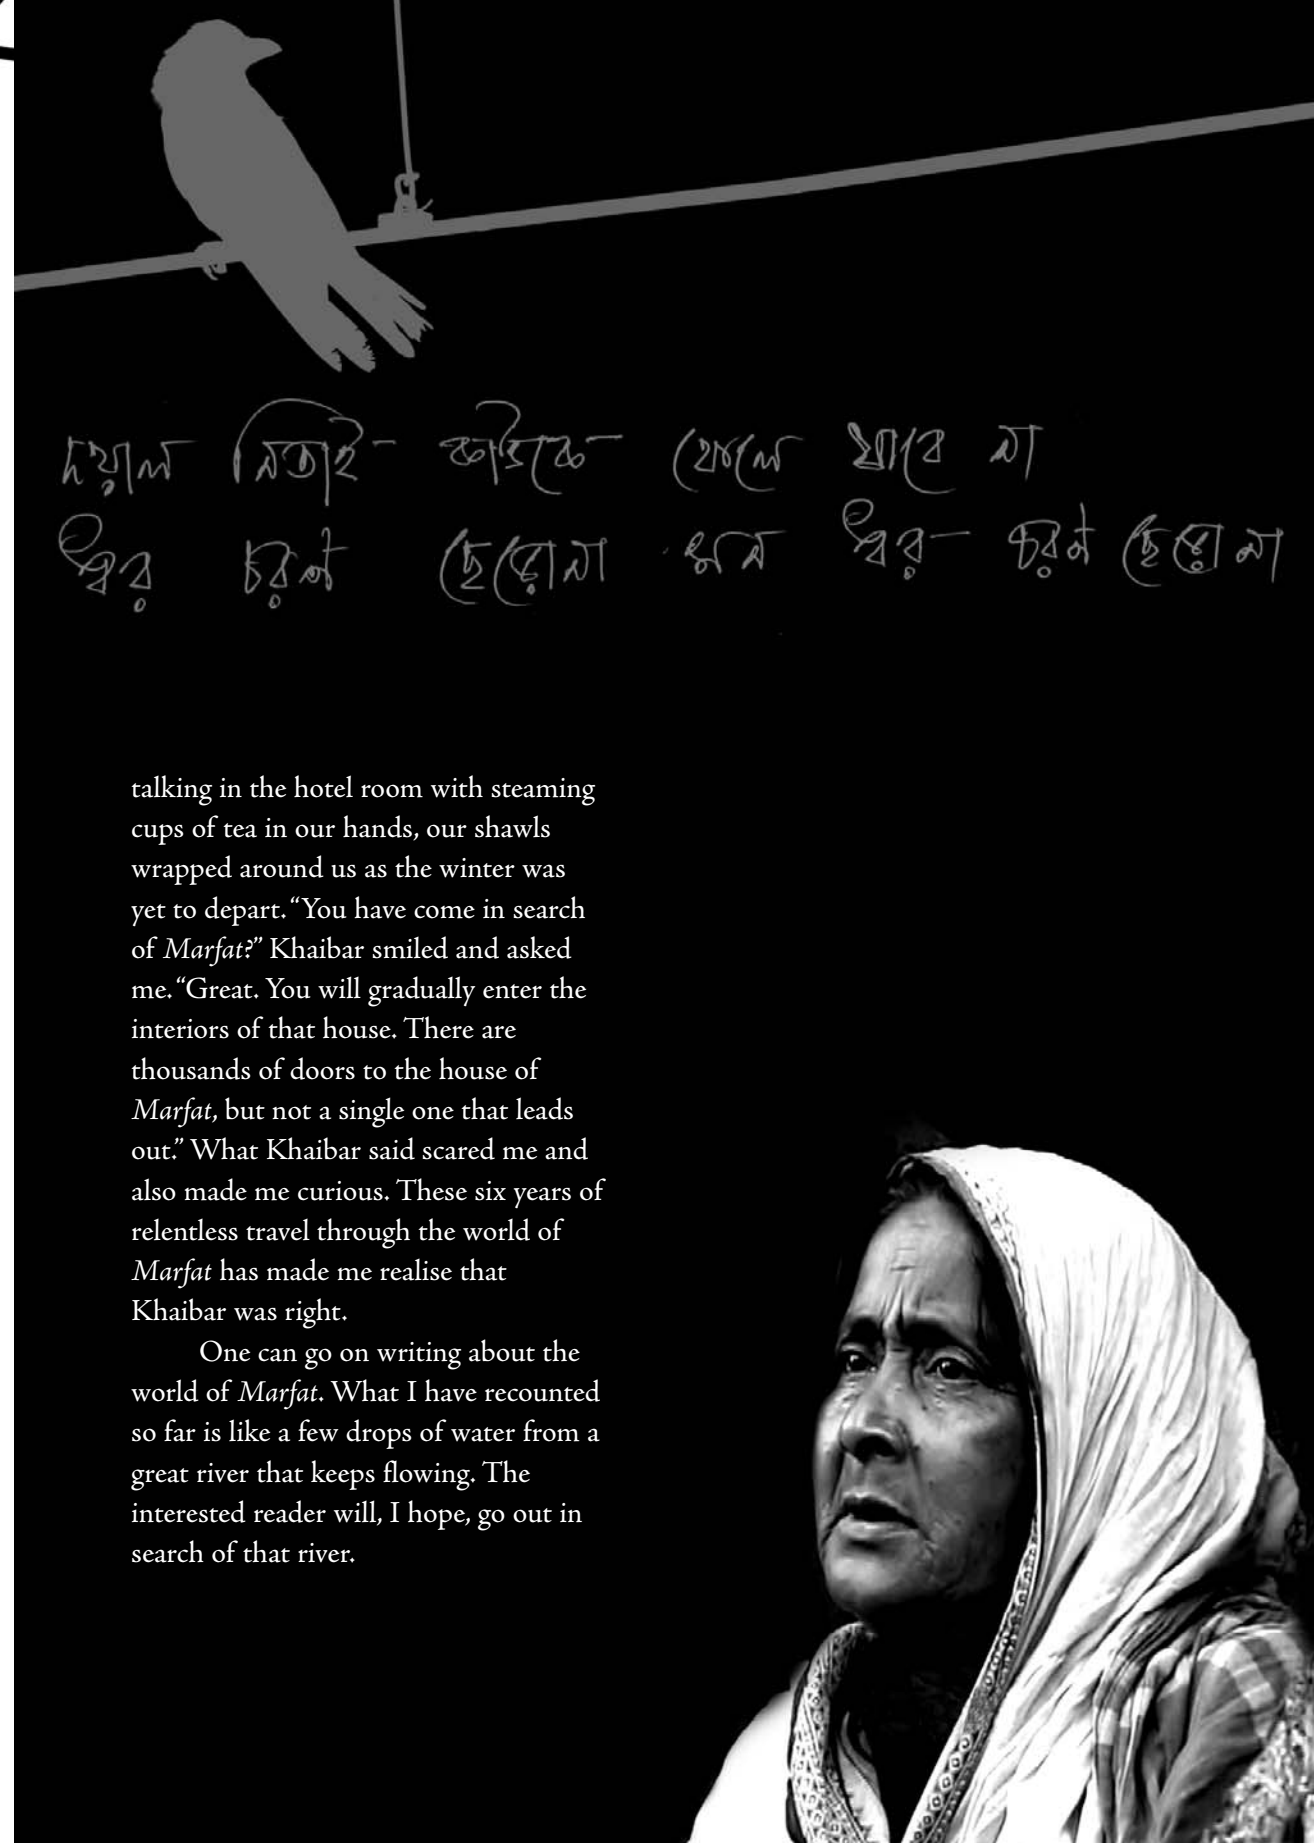 দয়াল নিতাই কাউকে ফেলে যাবে না
ধর চরণ ছেড়োনা মন ধর চরণ ছেড়োনা
talking in the hotel room with steaming
cups of tea in our hands, our shawls
wrapped around us as the winter was
yet to depart. “You have come in search
of Marfat?” Khaibar smiled and asked
me. “Great. You will gradually enter the
interiors of that house. There are
thousands of doors to the house of
Marfat, but not a single one that leads
out.” What Khaibar said scared me and
also made me curious. These six years of
relentless travel through the world of
Marfat has made me realise that
Khaibar was right.
One can go on writing about the
world of Marfat. What I have recounted
so far is like a few drops of water from a
great river that keeps flowing. The
interested reader will, I hope, go out in
search of that river.